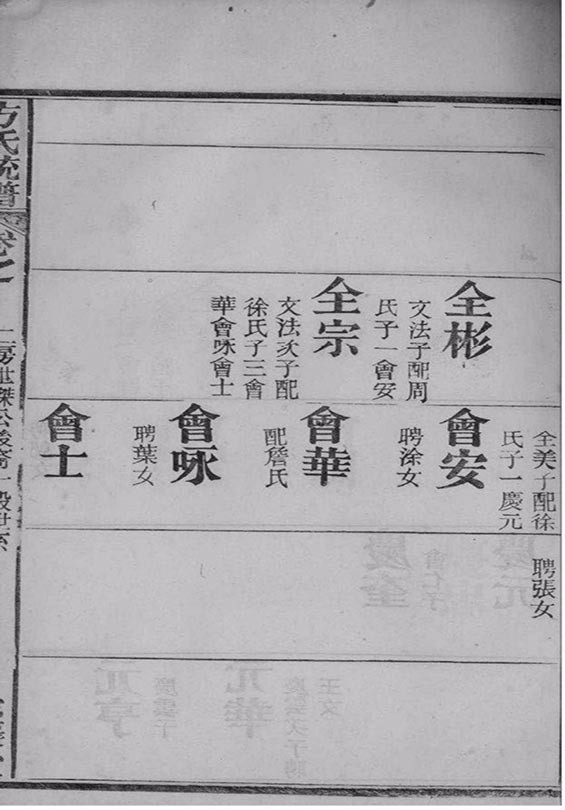 全彬
文法子配周
氏子一會安
全宗
文法次子配
徐氏子三會
華會咏會士
全美子配徐
氏子一慶元
會安
聘涂女
會華
配詹氏
會咏
聘葉女
會士
聘張女
方氏統譜
卷之